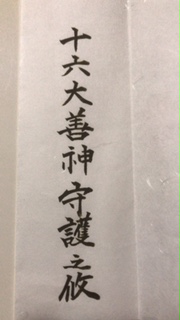 十六大善神守護之攸